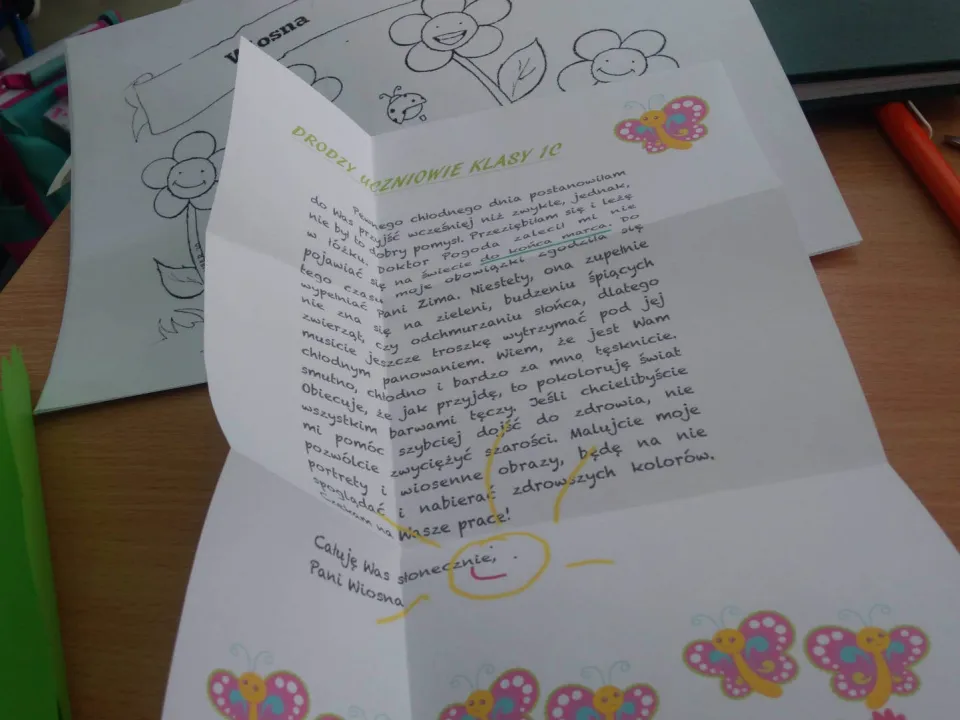 Wiosna
DRODZY UCZNIOWIE KLASY 1C
Pewnego chłodnego dnia postanowiłam
do Was przyjść wcześniej niż zwykle, jednak,
nie był to dobry pomysł. Przeziębiłam się i leżę
w łóżku. Doktor Pogoda zalecił mi nie
pojawiać się na świecie do końca marca. Do
tego czasu moje obowiązki zgodziła się
wypełniać Pani Zima. Niestety, ona zupełnie
nie zna się na zieleni, budzeniu śpiących
zwierząt, czy odchmurzaniu słońca, dlatego
musicie jeszcze troszkę wytrzymać pod jej
chłodnym panowaniem. Wiem, że jest Wam
smutno, chłodno i bardzo za mną tęsknicie.
Obiecuje, że jak przyjdę, to pokoloruję świat
wszystkim barwami tęczy. Jeśli chcielibyście
mi pomóc szybciej dojść do zdrowia, nie
pozwólcie zwyciężyć szarości. Malujcie moje
portrety i wiosenne obrazy, będę na nie
spoglądać i nabierać zdrowszych kolorów.
Czekam na Wasze prace!
Całuję Was słonecznie,
Pani Wiosna